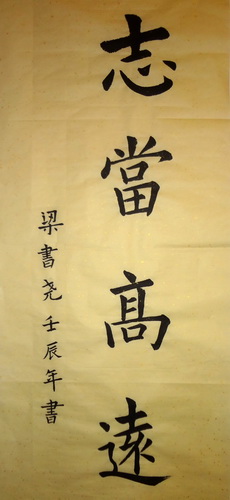 志當高遠
梁書尧壬辰年書